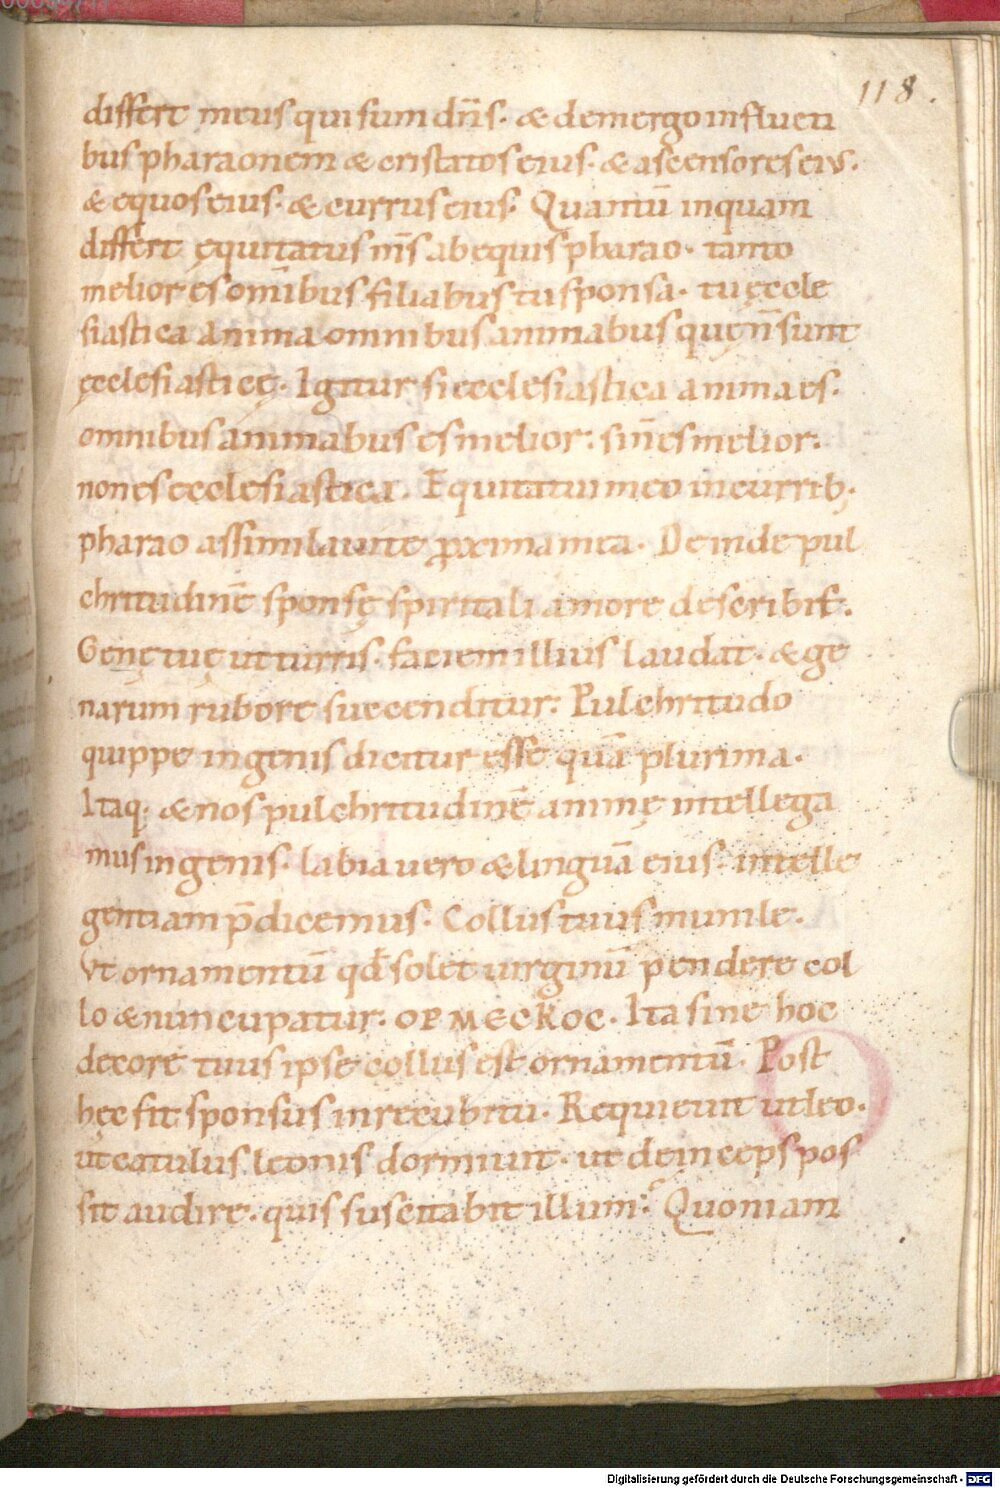 118.
differt meus qui sum dn̄s. & demergo in flucti
bus pharaonem & cristatos eius. & ascensores eius.
& equos eius. & currus eius. Quantū inquam
differt ęquitatus m̄s ab equis pharao. tanto
melior es om̄ibus filiabus tu sponsa. tu ęccle
siastica anima omnibus animabus quę n̄ sunt
ęcclesiasticę. Igitur si ecclesiastica anima es.
omnibus animabus es melior: si n̄ es melior:
non es ecclesiastica. Equitatui meo in currib;
pharao assimilaui te ꝓxima mea. Deinde pul
chritudinē sponsę spiritali amore describit.
Genę tuę ut turris. faciem illius laudat. & ge
narum rubore succenditur: Pulchritudo
quippe in genis dicitur esse quā plurima.
Itaq. & nos pulchritudinē animę intellega
mus in genis. labia uero & linguā eius. intelle
gentiam p̄dicemus. Collus tuus munile.
Vt ornamentū qđ solet uirginū pendere col
lo & nuncupatur. ΟΡΜΕСΚΟС. Ita sine hoc
decore tuus ipse collus est ornamentū. Post
hęc fit sponsus in recubitu. Requieuit ut leo.
ut catulus leonis dormiuit. ut deinceps pos
sit audire. quis suscitabit illum? Quoniam
Digitalisierung gefördert durch die Deutsche Forschungsgemeinschaft - DFG